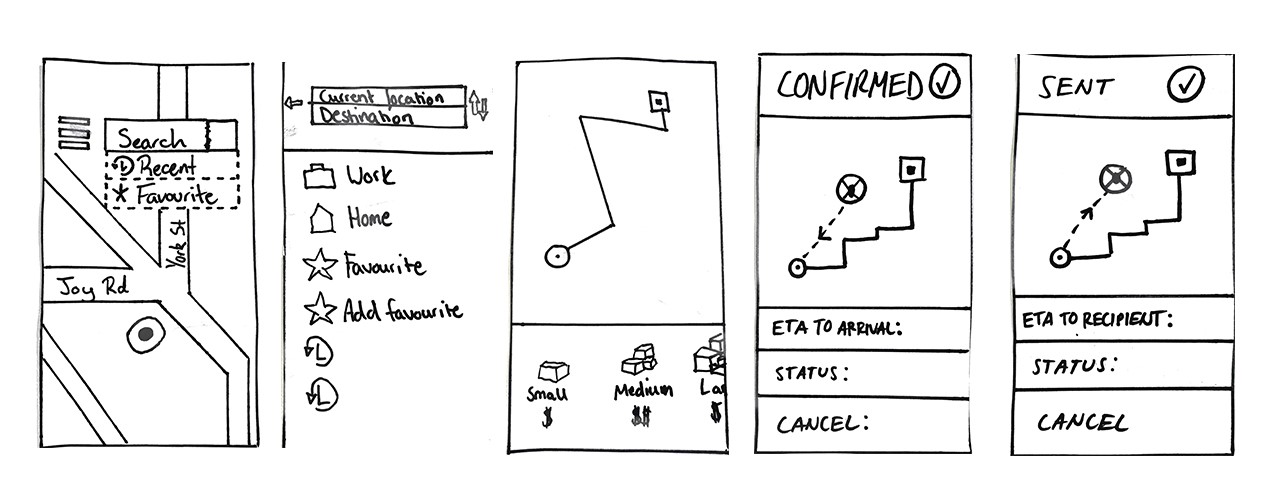 Search
Recent
Favourite
York St
Joy Rd
Current location
Destination
Work
Home
Favourite
Add favourite
Small
$
Medium
$$
La
$
CONFIRMED
ETA TO ARRIVAL:
STATUS:
CANCEL:
SENT
ETA TO RECIPIENT:
STATUS:
CANCEL